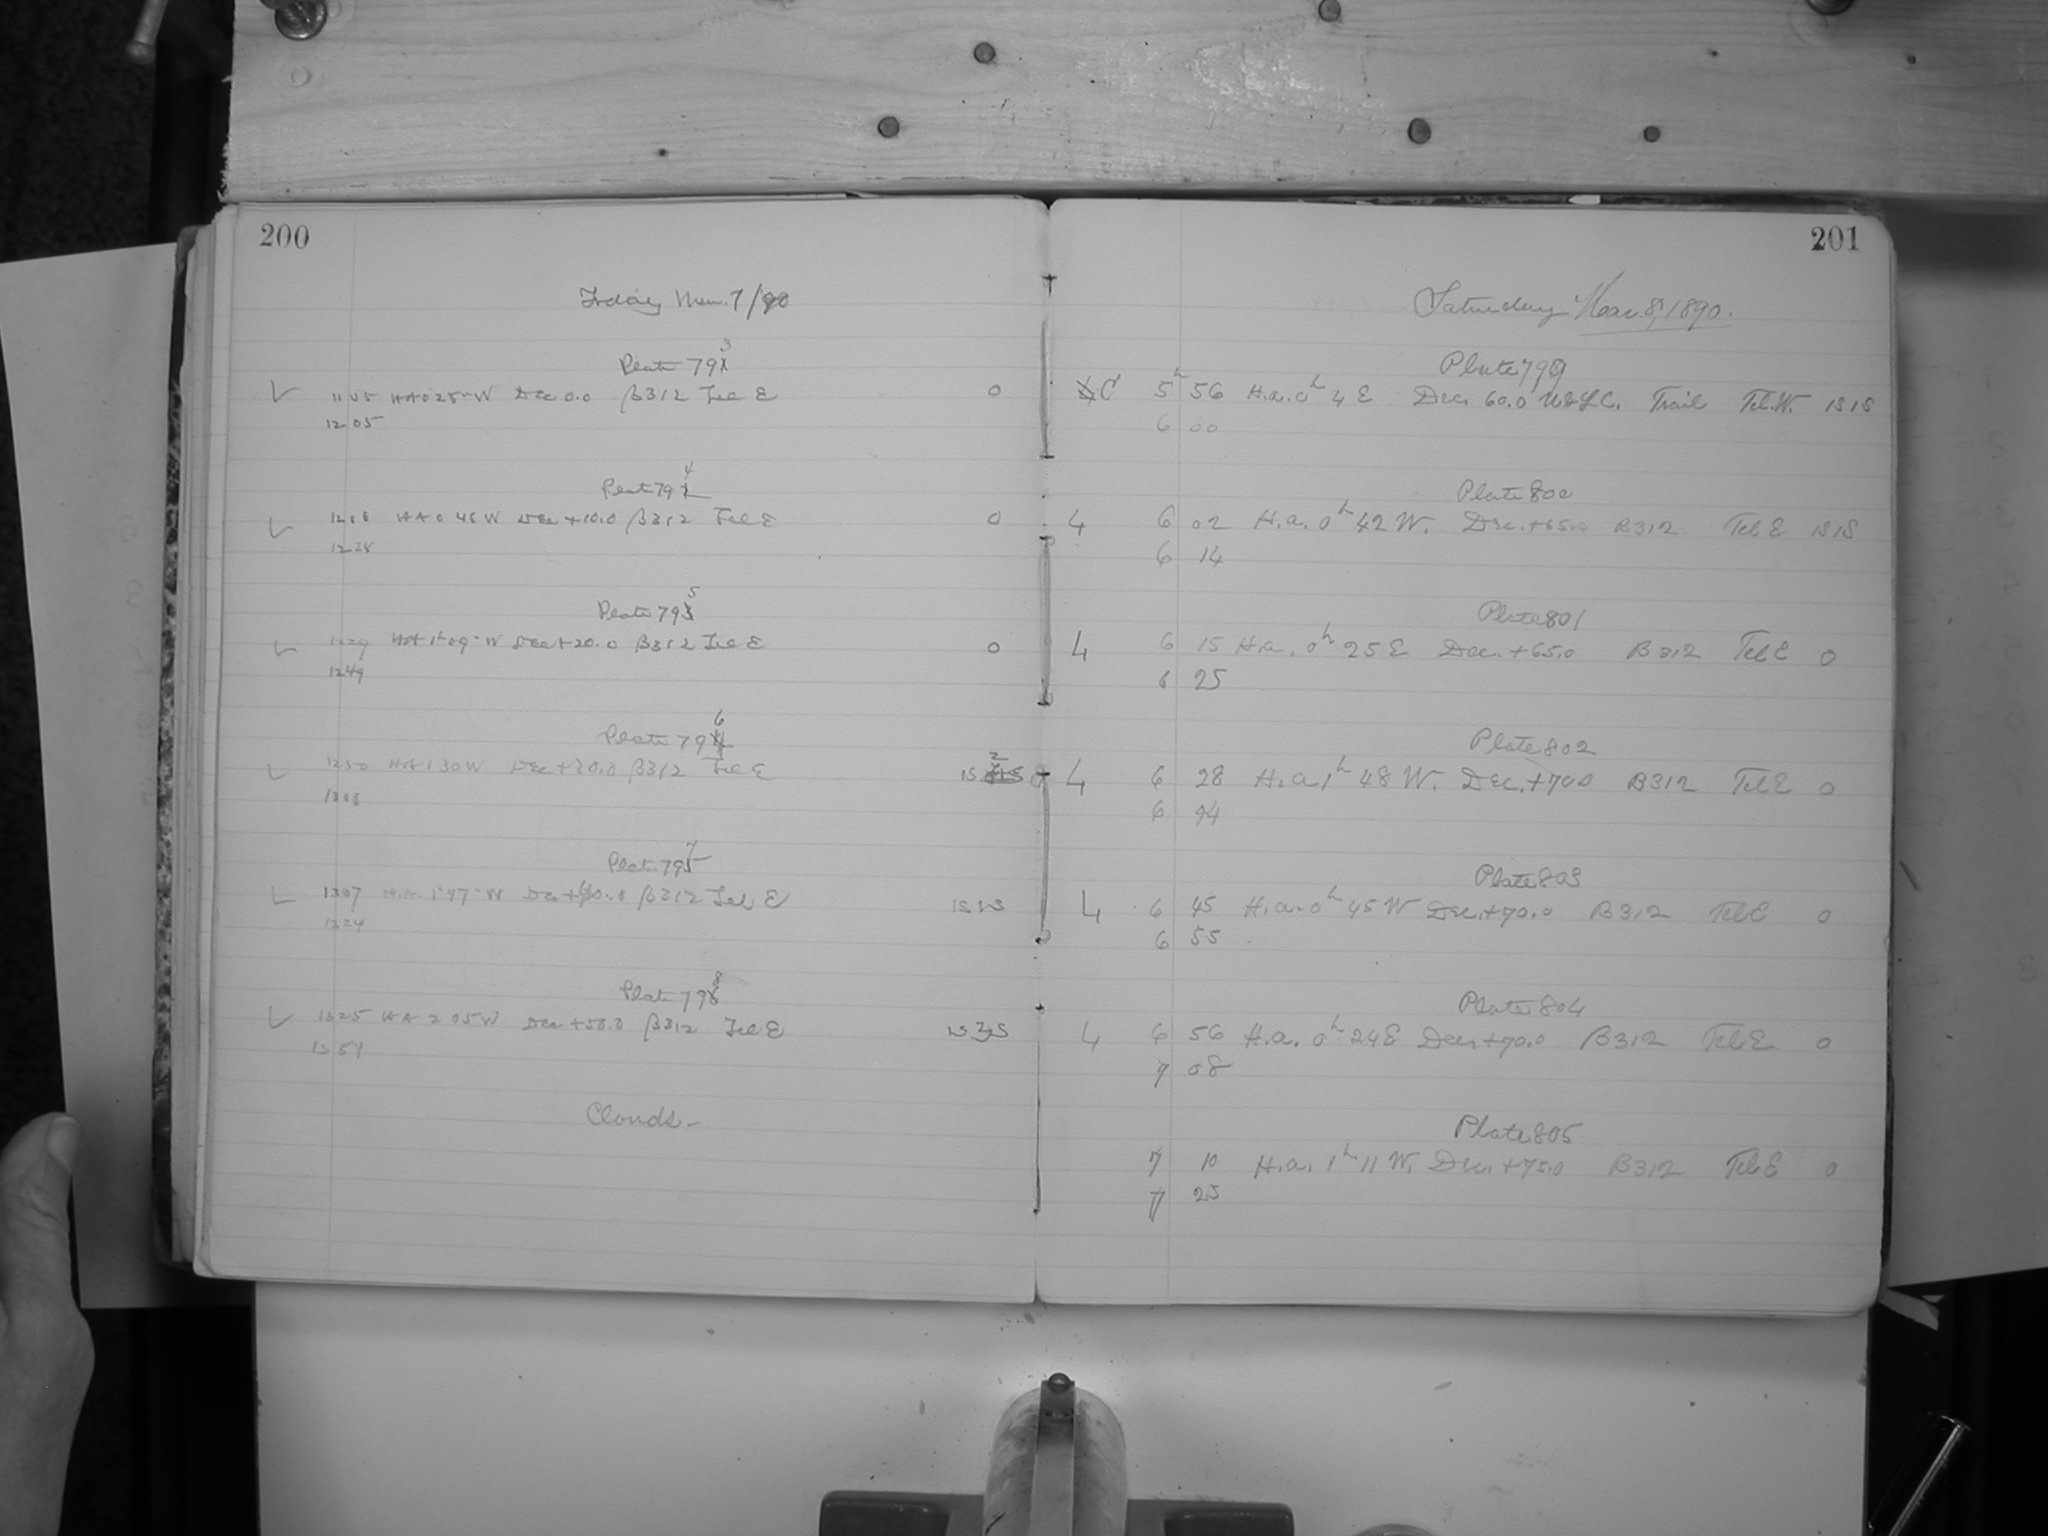 200
Friday Mar. 7/90
Plate 793
✓ 11 45 HA 0 25 W Dec 0.0 B312 Tel E 0
12 05
Plate 794
✓ 1208 HA 0 48 W Dec +10.0 B312 Tel E 0
12 28
Plate 795
✓ 1229 HA 1h 09 W Dec +20.0 B312 Tel E 0
1249
Plate 796
✓ 1250 HA 1 30 W Dec +30.0 B312 Tel E 1S 2
Plate 797
1307 H.A. 1 47 W Dec +40.0 B312 Tel E
1324
Plate 798
✓ 1325 HA 2 05 W Dec +50.0 B312 Tel E
Clouds.
201
Saturday Mar. 8, 1890.
Plate 799
C 5h 56 H.a. 0h 4 E Dec. 60.0 U & L C. Trail Tel. W. 1S 1S
6 00
Plate 800
4 6 02 H.a. 0h 42 W. Dec. +65.0 B312 Tel E 1S 1S
6 14
Plate 801
4 6 15 H.a. 0h 25 E Dec. +65.0 B312 Tel E 0
6 25
Plate 802
4 6 28 H.a. 1h 48 W. Dec. +70.0 B312 Tel E 0
6 44
Plate 803
4 6 45 H.a. 0h 45 W Dec. +70.0 B312 Tel E 0
6 55
Plate 804
4 6 56 H.a. 0h 24 E Dec. +70.0 B312 Tel. E. 0
7 08
Plate 805
7 10 H.a. 1h 11 W. Dec. +75.0 B312 Tel E 0
7 25